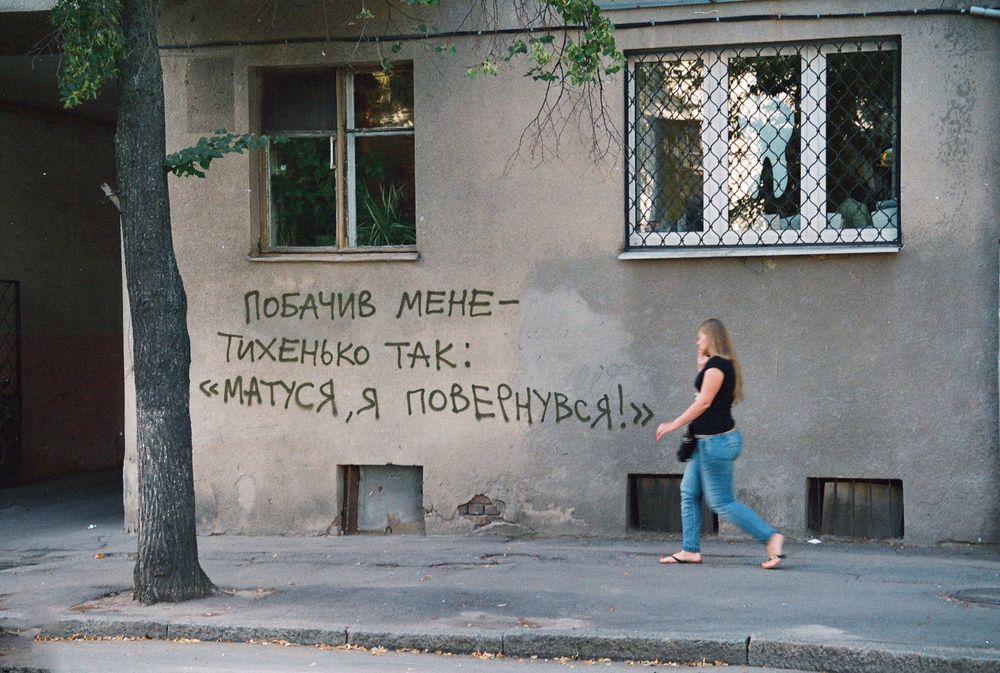 ПОБАЧИВ МЕНЕ–
ТИХЕНЬКО ТАК:
«МАТУСЯ, Я ПОВЕРНУВСЯ!»